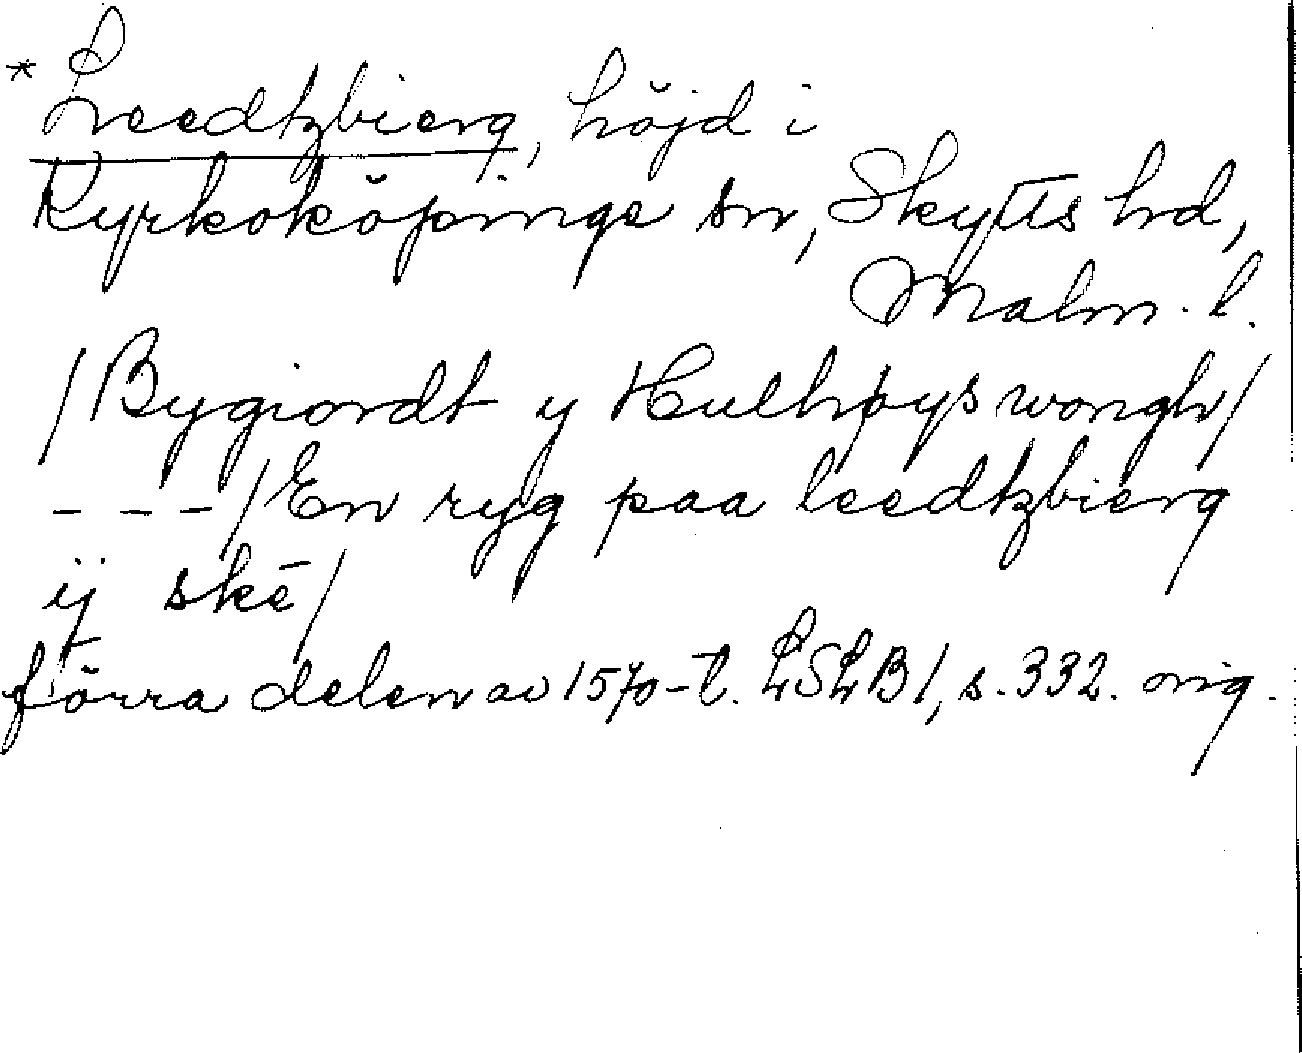 * Leedtzbierg, höjd i
Kyrkoköpinge sn, Skytts hd,
Malm. l.
/Bygiordt y Hulhøys wongh/
- - - /En ryg paa leedtzbierg
ij skē/
förra delen av 1570-t. LSLB1, s. 332. orig.